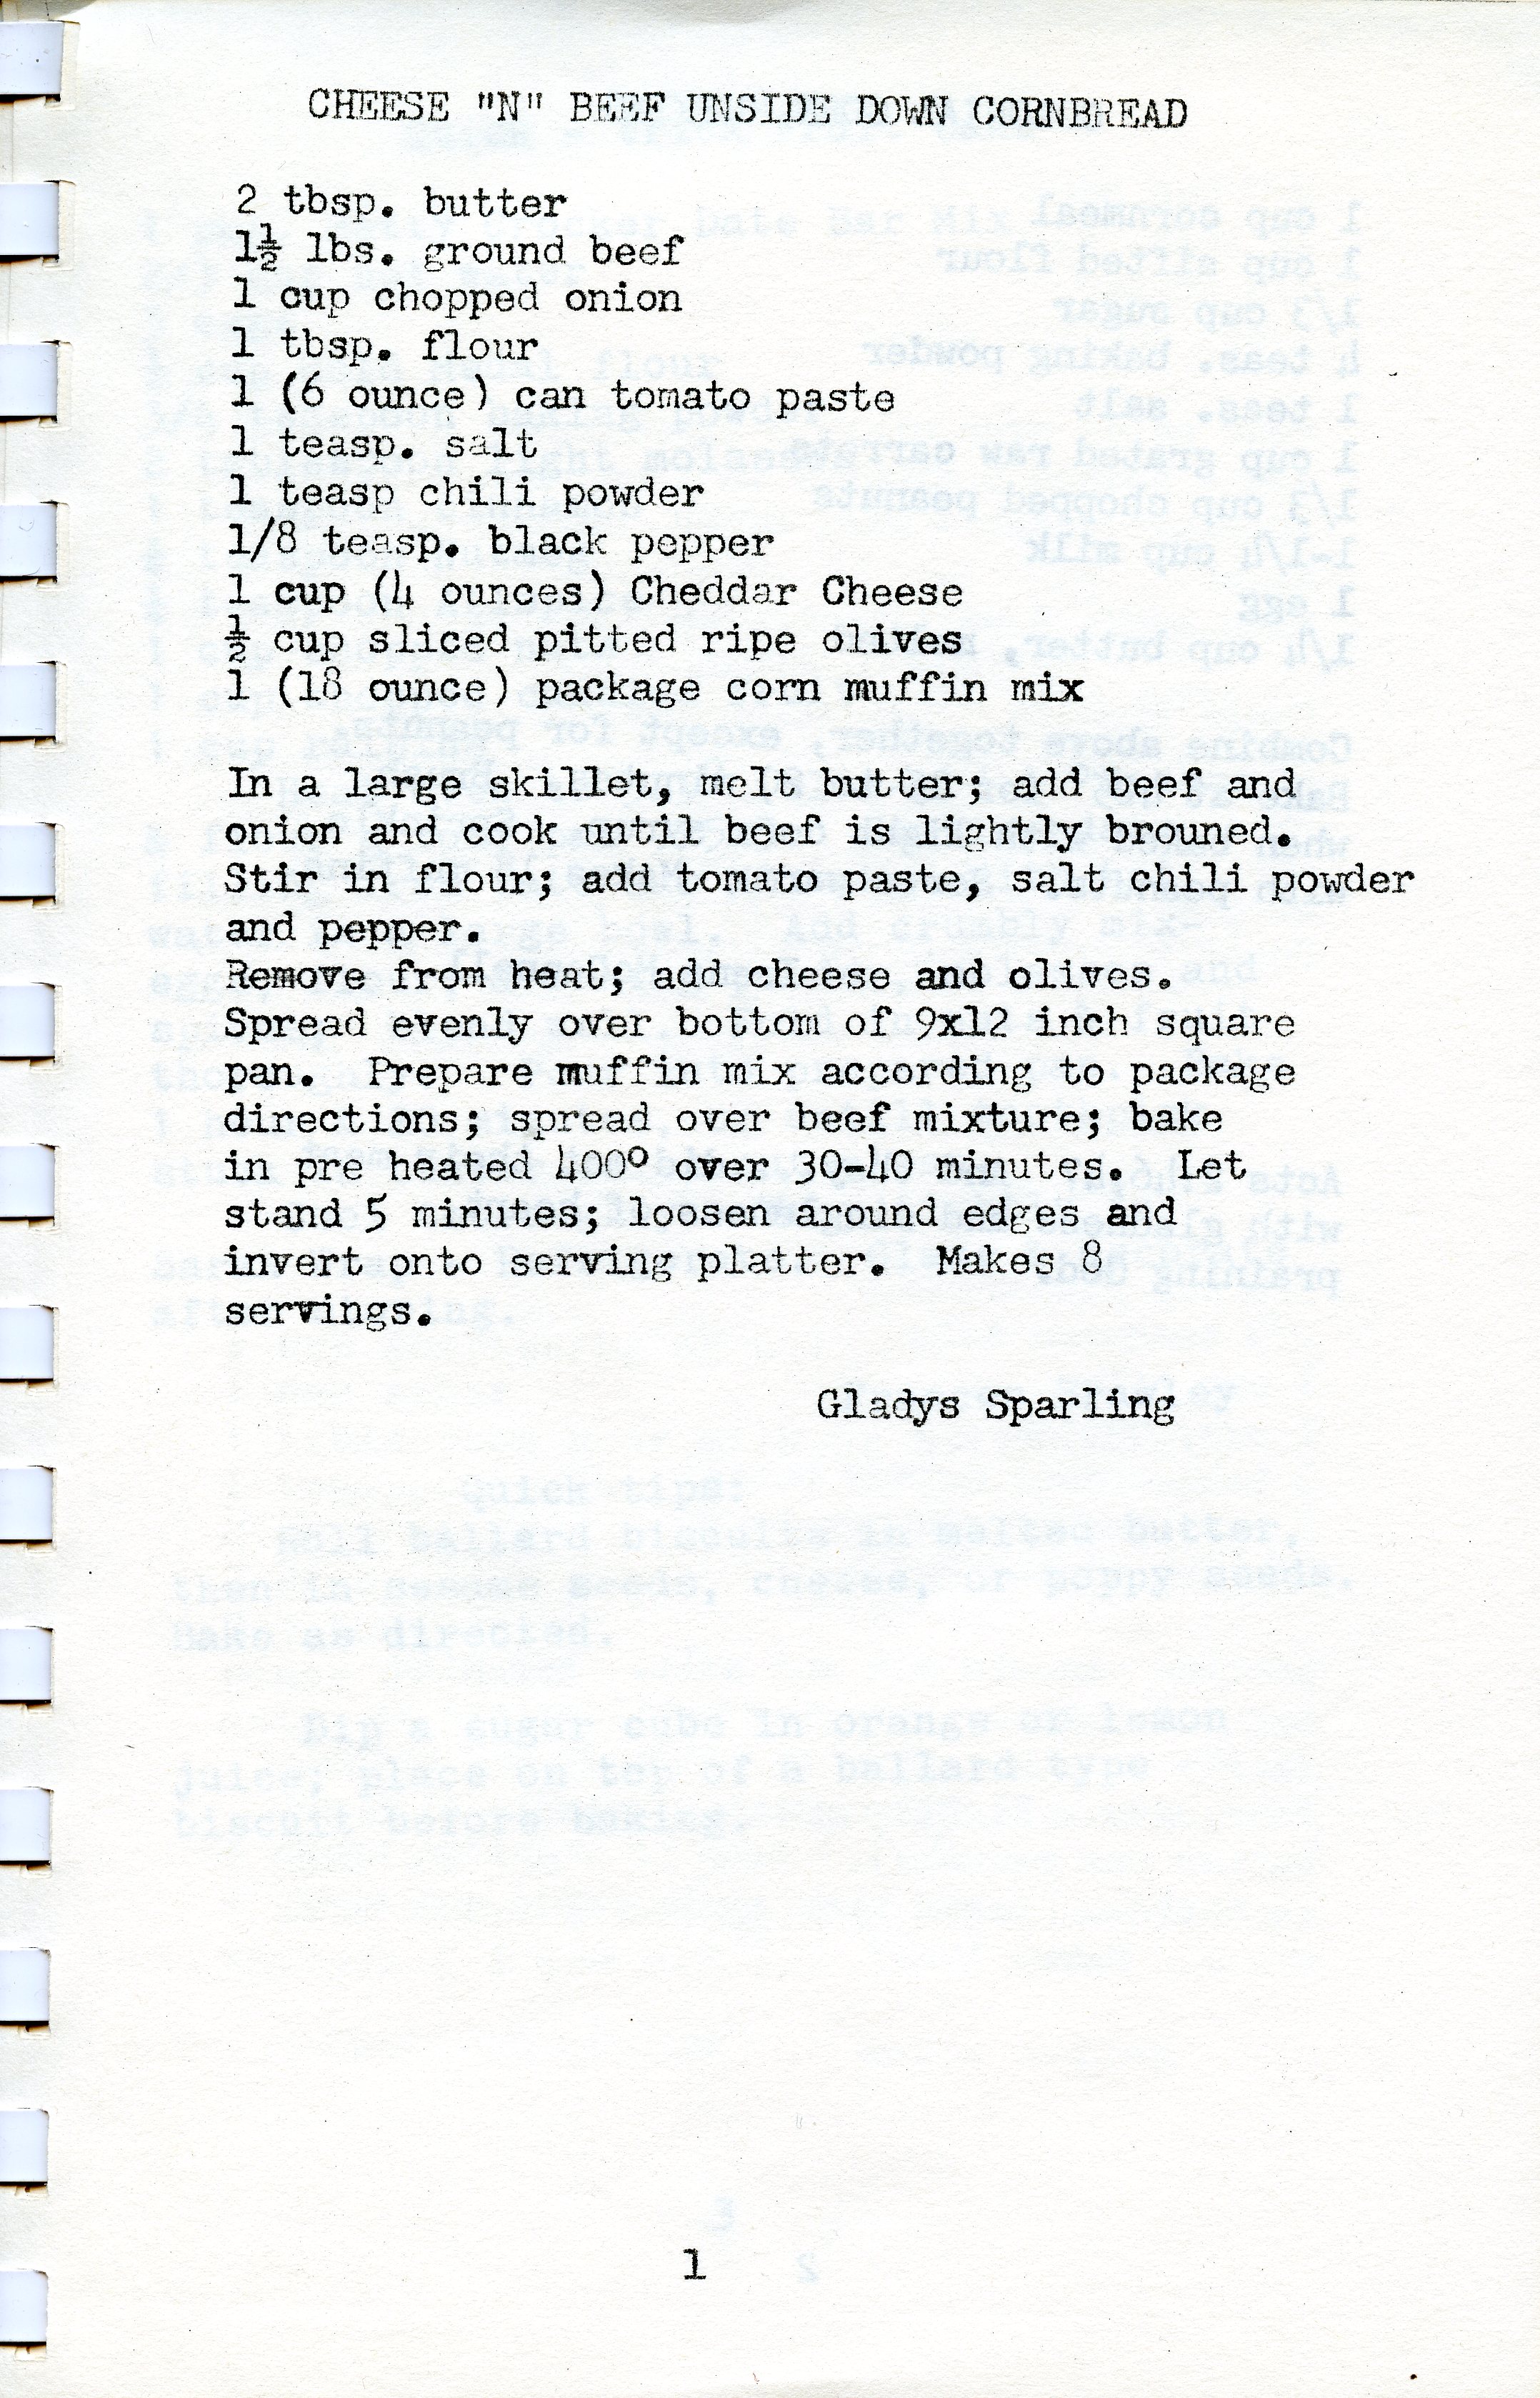 CHEESE "N" BEEF UNSIDE DOWN CORNBREAD
2 tbsp. butter
1½ lbs. ground beef
1 cup chopped onion
1 tbsp. flour
1 (6 ounce) can tomato paste
1 teasp. salt
1 teasp chili powder
1/8 teasp. black pepper
1 cup (4 ounces) Cheddar Cheese
½ cup sliced pitted ripe olives
1 (18 ounce) package corn muffin mix
In a large skillet, melt butter; add beef and
onion and cook until beef is lightly brouned.
Stir in flour; add tomato paste, salt chili powder
and pepper.
Remove from heat; add cheese and olives.
Spread evenly over bottom of 9x12 inch square
pan. Prepare muffin mix according to package
directions; spread over beef mixture; bake
in pre heated 400° over 30-40 minutes. Let
stand 5 minutes; loosen around edges and
invert onto serving platter. Makes 8
servings.
Gladys Sparling
1